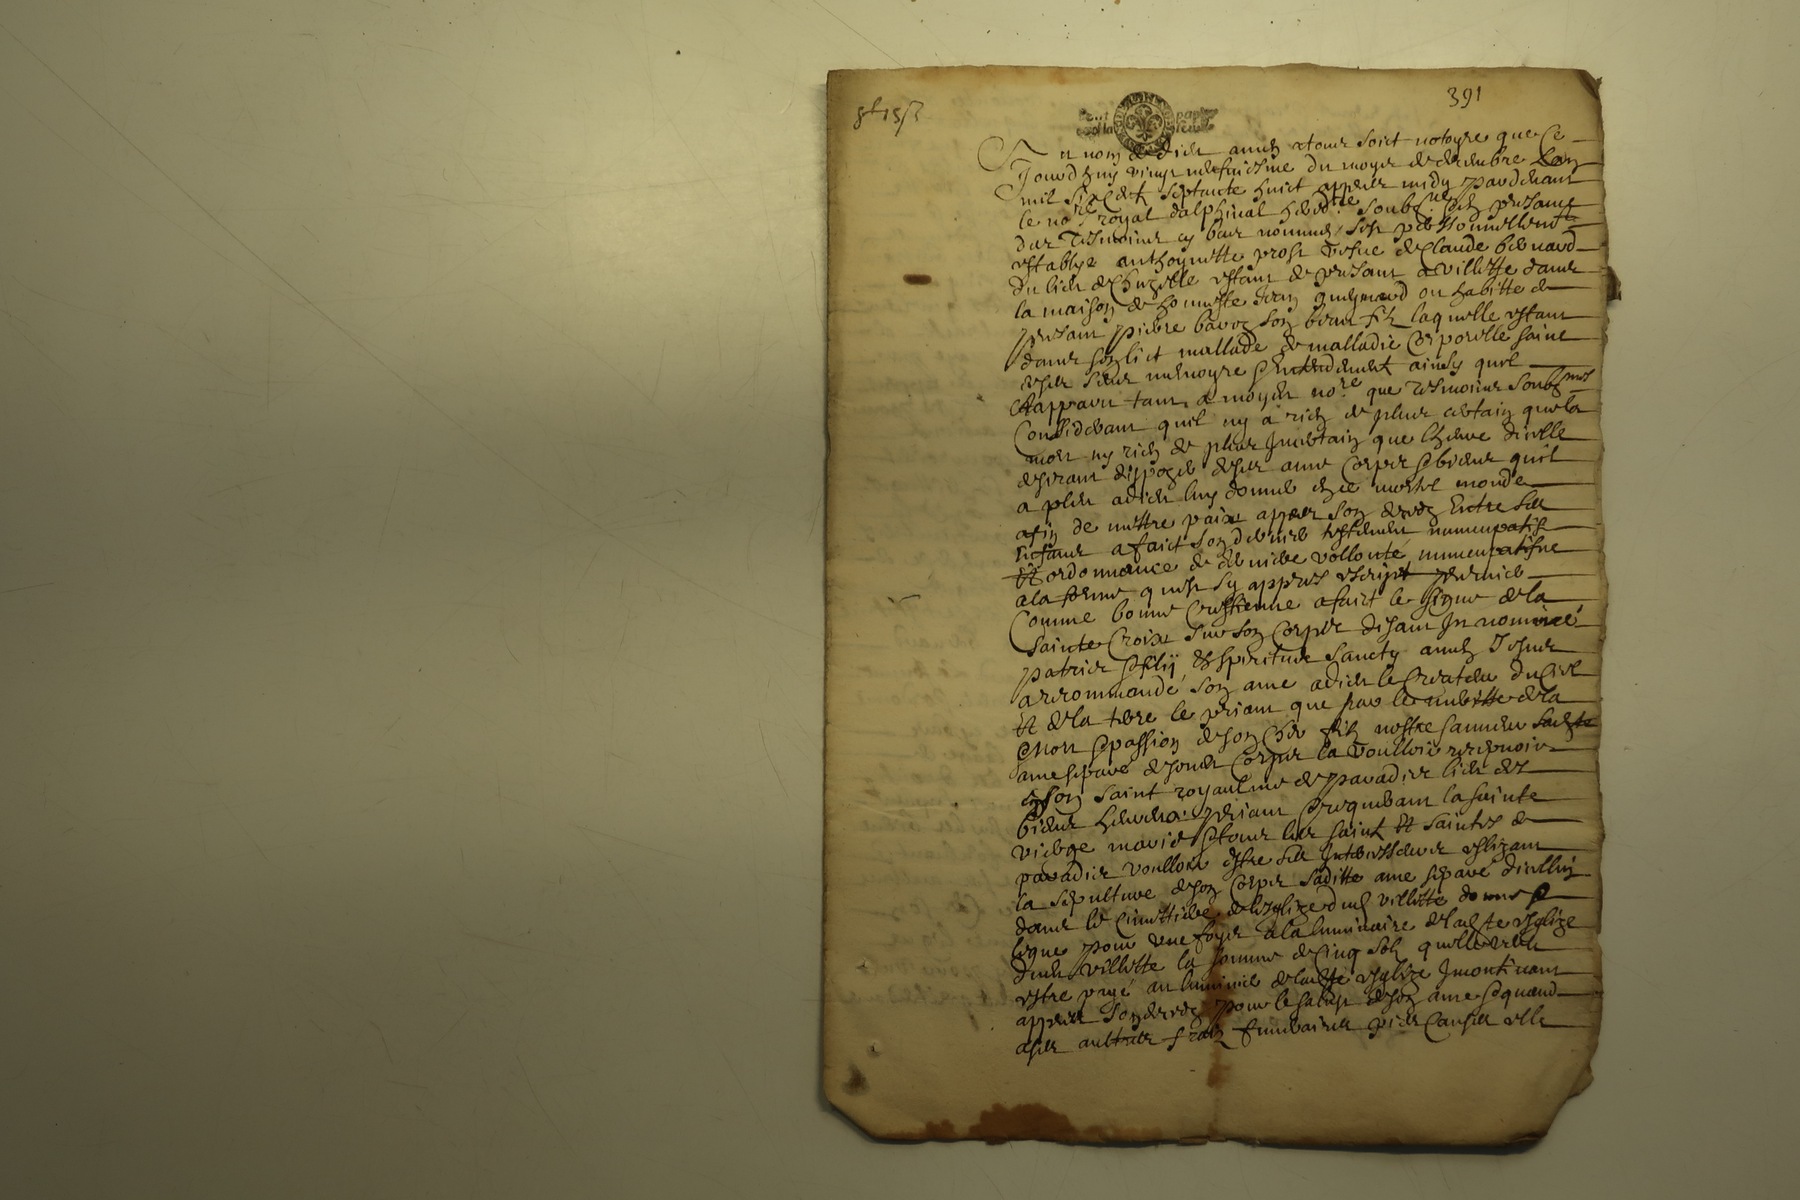 391
Au nom de dieu amen a tous soict notoyre que Ce
Jourdhuy vingt me du moys de decembre Lan
mil six Cent septante huict appres midy pardevant
le no.re royal dalphinal present
des tesmoins cy bas nommes sest personnellement
establye anthoynette vefve de Claude bernard
du lieu de estant de present a villette dans
la maison de honneste Jean ou habitte de
present pierre son beau filz laquelle estant
dans son lict mallade de malladie Corporelle saine
de ses sens memoyre & entendement ainsy quil
appavu tant a moydit no.re que tesmoins soubz
Considerant quil ny a rien de plus certain que la
mort ny rien de plus Incertain que lheure dicelle
desirant disposer de ses ame Corps & biens quil
a pleu a dieu luy donner en ce mortel monde
afin de mettre paix appres son deces Entre ses
enfans a faict son dernier testement nuncupatif
Et ordonnance de derniere vollonté nuncupatifve
a la forme quest sy appres escript
Comme bonne Crestienne a faict le signe de la
Sainte Croix sur son Corps disant In nomine
patris & filij & spiritus Sancty amen
a recommandé son ame a dieu le Createur du Ciel
Et de la terre le priant que par le meritte de la
mort & passion de son Cher filz nostre sauveur
ame separé de son Corps la voulloir recepvoir
en son saint royaulme de paradis lieu des
biens heureux priant & requerant la sainte
vierge marie & tous les saint Et saintes de
paradis voulloir estre ses Intercesseurs eslizant
la sepulture de son Corps saditte ame separé dicelluy
dans le Cimettiere de leglize dud villette donne &
legue pour une foys a la luminaire de ladte esglize
dud villette la somme de Cinq solz quelle veut
estre payé au luminier de ladte esglize Incontinant
appres son deces pour le salut de son ame & quand
a ses aultres fraitz funeraires pies Causes elle